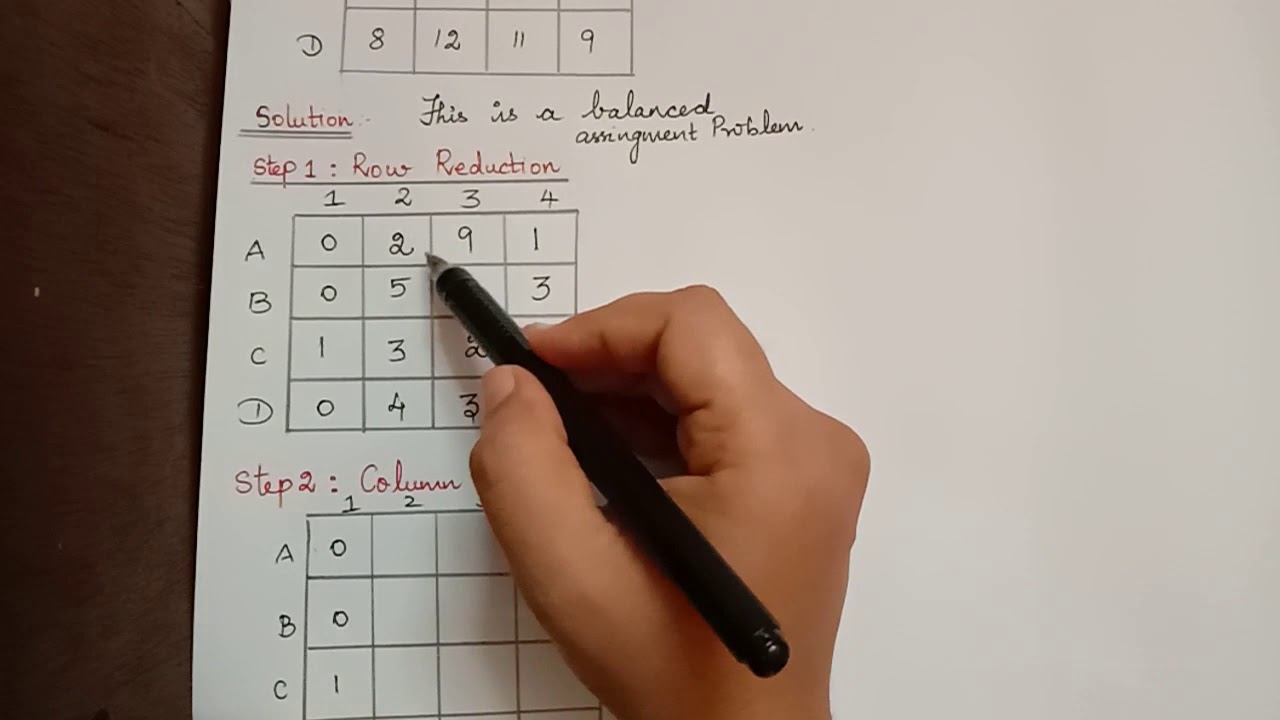 D 8 12 11 9
Solution :- This is a balanced
assingment Problem.
Step 1 : Row Reduction
1 2 3 4
A 0 2 9 1
B 0 5 3
C 1 3 2
D 0 4 3
Step 2 : Column
1 2
A 0
B 0
C 1